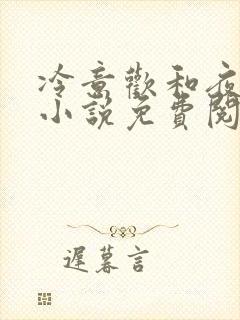 冷意歡和夜
小說免費閱
遲暮言